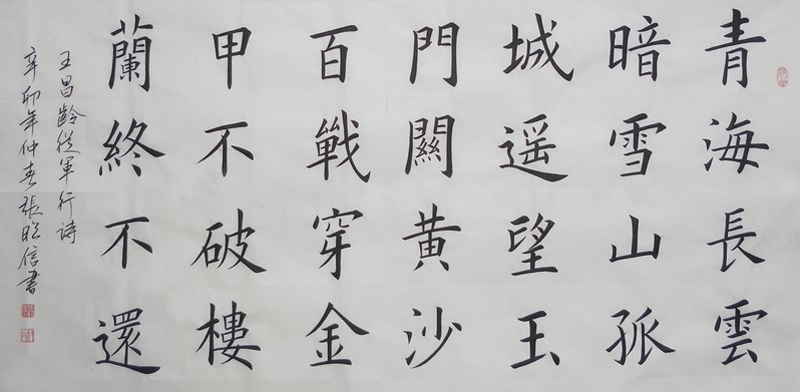 青海長雲
暗雪山孤
城遥望玉
門關黄沙
百戰穿金
甲不破樓
蘭終不還
王昌齡從軍行诗
辛卯年仲春張昭信書